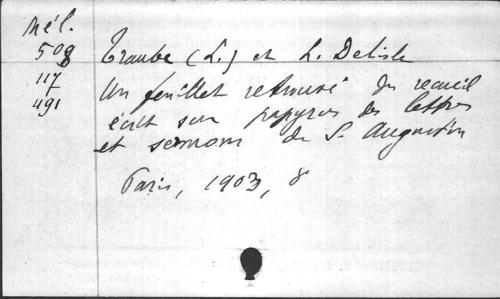 Mél.
508 Traube (L.) et L. Delisle
117 Un feuillet retrouvé du recueil
491 écrit sur papyrus des lettres
et sermons de S. Augustin
Paris, 1903, 8